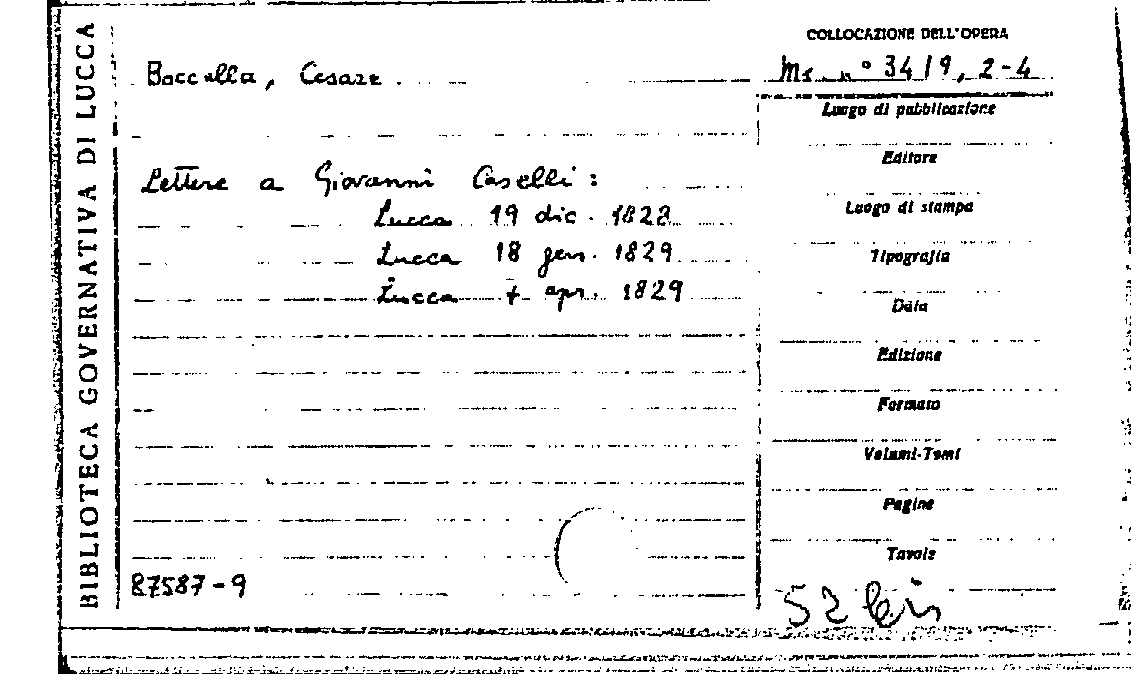 BIBLIOTECA GOVERNATIVA DI LUCCA
COLLOCAZIONE DELL'OPERA
Boccella, Cesare
Ms. n° 3419, 2-4
Luogo di pubblicazione
Editore
Lettere a Giovanni Caselli:
Luogo di stampa
Lucca 19 dic. 1828
Lucca 18 gen. 1829
Tipografia
Lucca 7 apr. 1829
Data
Edizione
Formato
Volumi-Tomi
Pagine
Tavole
87587-9
52